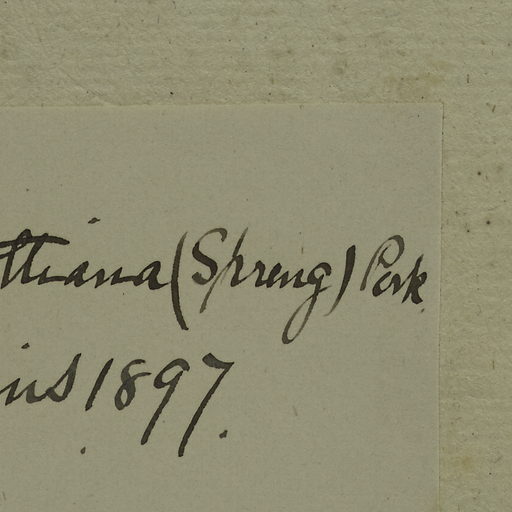 ttiana (Spreng) Perk.
ins 1897.